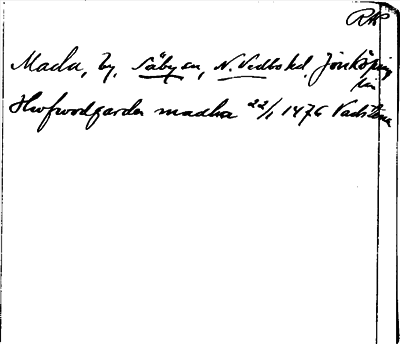 RAP
Mada, by, Säby sn, N. Vedbo hd, Jönköping
län
Hwfwodgarda madha 22/1 1476 Vadstena